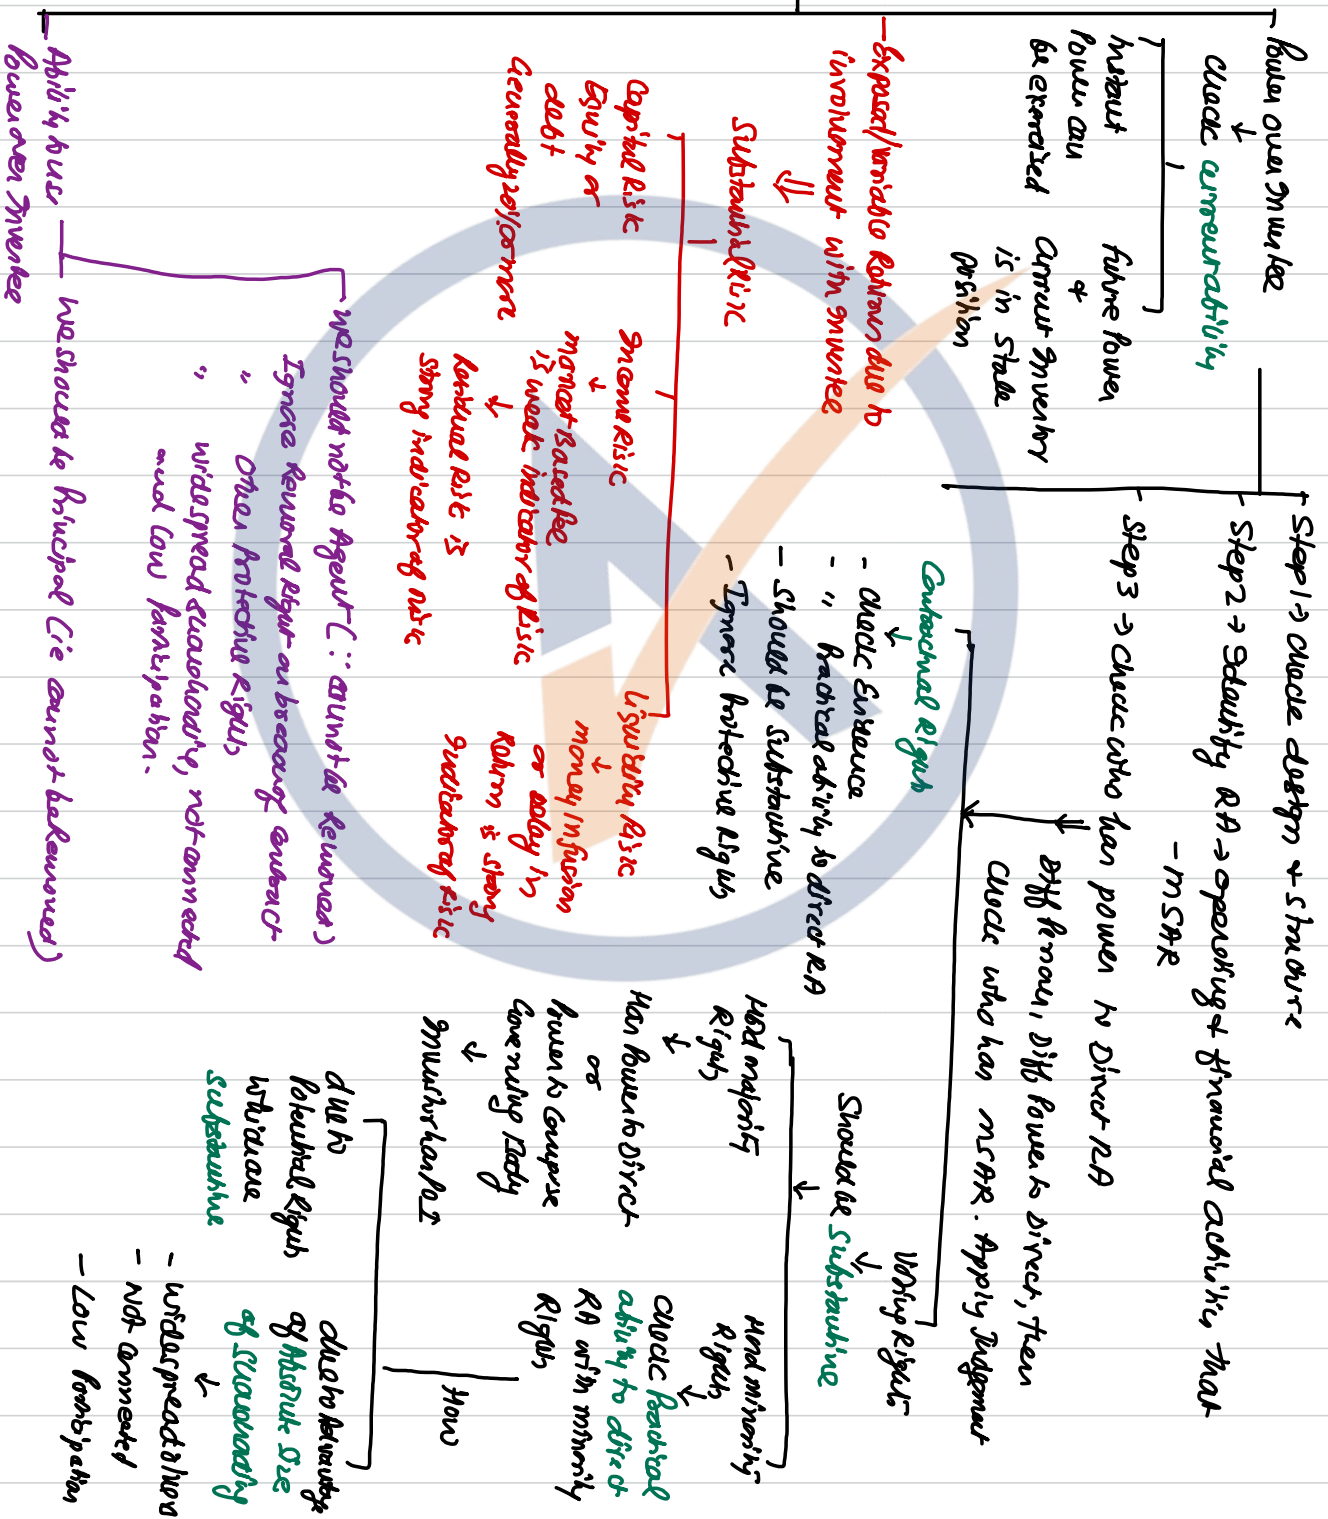 Power over Investee
↓
Check currentability
Instant
Power can
be exercised
Future Power
&
Current Investor
is in Stake
position
Step1 → check design & structure
Step2 → Identify RA → operating & financial activities that
- MSAR
Step3 → check who has power to Direct RA
Diff Person, Diff Power to Direct, then
check who has MSAR. Apply Judgement
Contractual Rights
↓
- check Existence
- " Practical ability to direct RA
- Should be Substantive
- Ignore Protective Rights
Voting Rights
↓
Should be Substantive
↓
Hold majority
Rights
↓
Has Power to Direct
or
Power to Compose
Governing Body
↓
Investor has PoI
Hold minority
Rights
↓
Check Practical
ability to direct
RA with minority
Rights
How
due to
Potential Rights
which are
substantive
due to Advantage
of Absolute Size
of Shareholding
↓
- widespread others
- Not connected
- Low Participation
- Exposed/Variable Returns due to
involvement with Investee
⇓
Substantial Risk
Capital Risk
Equity or
debt
Generally 20% or more
Income Risk
↓
market Based fee
is weak indicator of Risk
↓
Residual Risk is
strong indicator of risk
Liquidity Risk
↓
money infusion
or delay in
Return is strong
indicator of Risk
- Ability to use
Power over Investee
we should not be Agent (∵ cannot be Removed)
Ignore Removal Right on breach of contract
" Other Protective Rights
" widespread shareholding, not connected
and Low Participation.
we should be Principal (ie cannot be Removed)